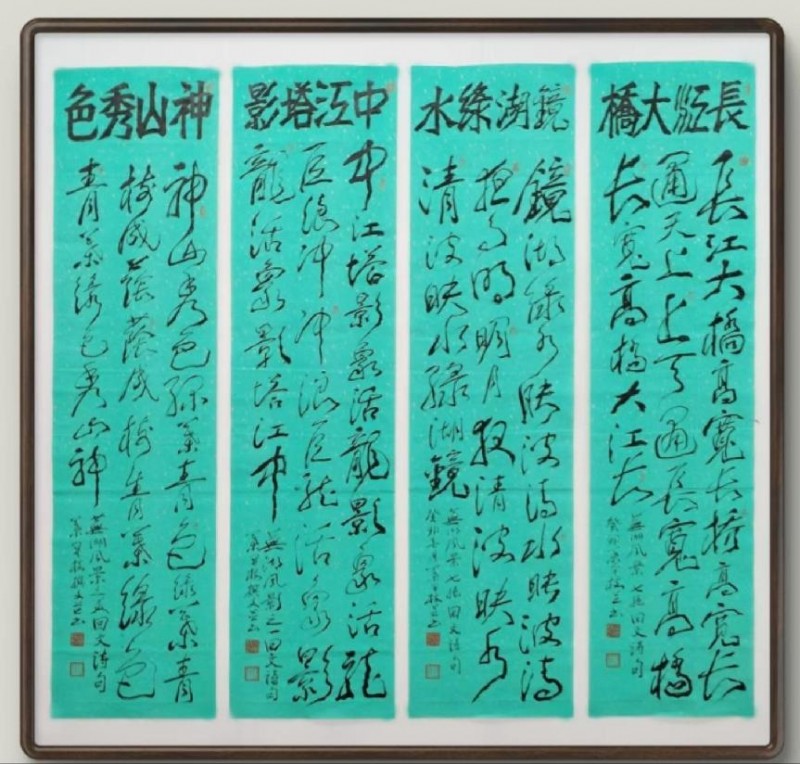 長江大橋
長江大橋高寬長橋高寬長
通天上上天通長寬高橋
長寬高橋大江長
蕪湖風景七絕回文詩句
鏡湖綠水
鏡湖綠水映波清水映波清
夜月明明月夜清波映水
清波映水綠湖鏡
蕪湖風景七絕回文詩句
中江塔影
中江塔影象活龍影象活龍
巨浪冲冲浪巨龍活象影
龍活象影塔江中
蕪湖風景之一回文詩句
神山秀色
神山秀色綠葉青色綠葉青
樹成蔭蔭成樹青葉綠色
青葉綠色秀山神
蕪湖風景之五回文詩句